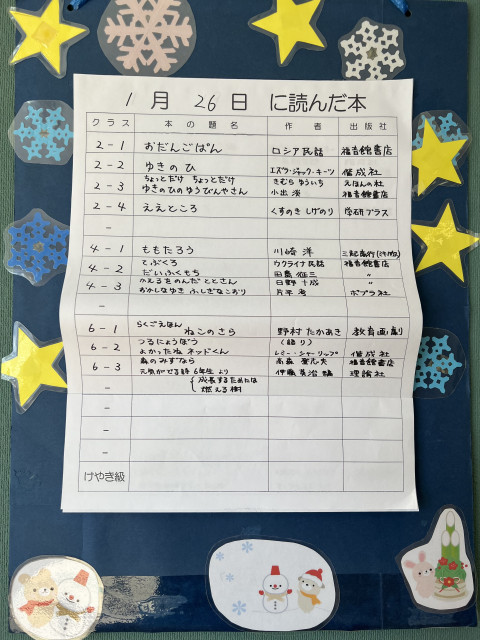 1月 26日 に読んだ本
クラス 本の題名 作者 出版社
2-1 おだんごぱん ロシア民話 福音館書店
2-2 ゆきのひ エズラ・ジャック・キーツ 偕成社
ちょっとだけ ちょっとだけ きむらゆういち えほんの杜
2-3 ゆきのひのゆうびんやさん 小出淡 福音館書店
2-4 ええところ くすのきしげのり 学研プラス
-
4-1 ももたろう 川崎洋 三起商行(ミキハウス)
てぶくろ ウクライナ民話 福音館書店
4-2 だいふくもち 田島征三 〃
かえるをのんだととさん 日野十成 〃
4-3 おかしなゆき ふしぎなこおり 片平孝 ポプラ社
-
6-1 らくごえほん ねこのさら 野村たかあき 教育画劇
6-2 つるにょうぼう (語り)
よかったねネッドくん レミー・シャーリップ 偕成社
6-3 森のみずなら 高森登志夫 福音館書店
元気がでる詩 6年生より 伊藤英治編 理論社
- 成長するためには
燃える樹
-
-
-
けやき級